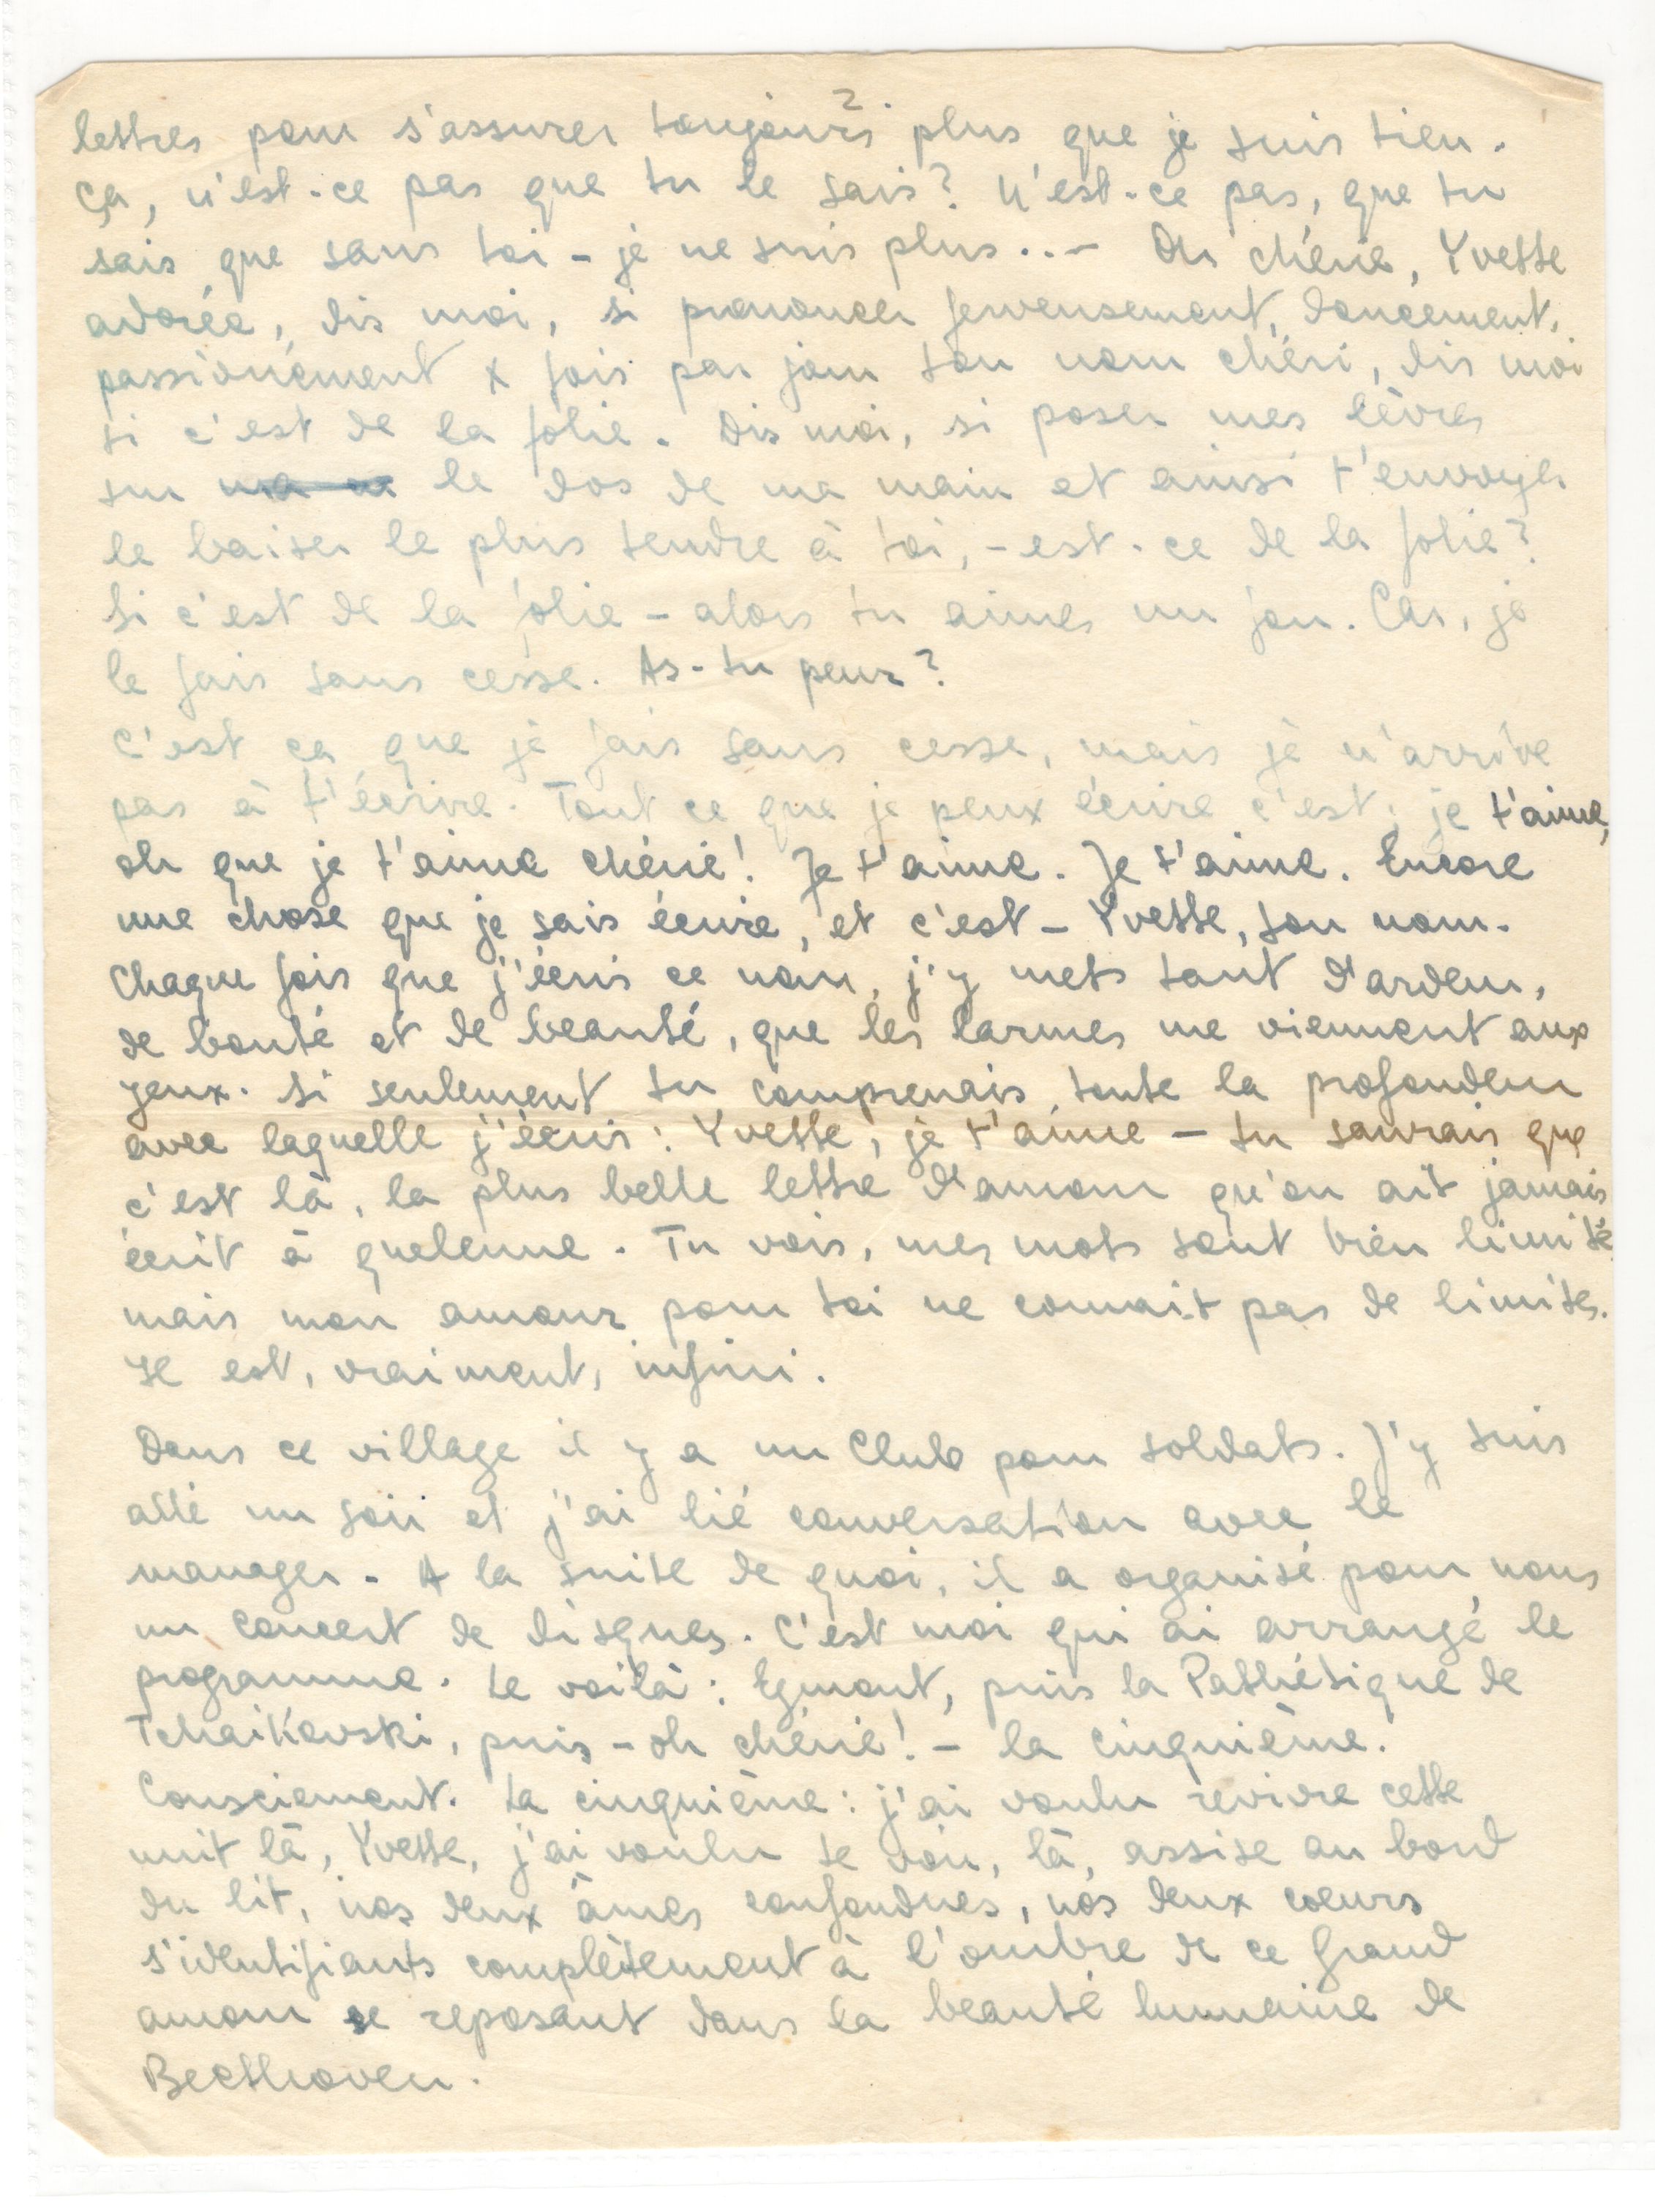 2.
lettres pour s'assurer toujours plus que je suis tien.
Ça, n'est-ce pas que tu le sais? N'est-ce pas, que tu
sais que sans toi - je ne suis plus..- Oh chérie, Yvette
adorée, dis moi, si prononcer ferveusement, doucement,
passionément x fois par jour ton nom chéri, dis moi
si c'est de la folie. Dis moi, si poser mes lèvres
sur le dos de ma main et ainsi t'envoyer
le baiser le plus tendre à toi, - est-ce de la folie?
Si c'est de la folie - alors tu aimes un fou. Car, je
le fais sans cesse. As-tu peur?
C'est ça que je fais sans cesse, mais je n'arrive
pas à t'écrire. Tout ce que je peux écrire c'est: je t'aime,
oh que je t'aime chérie! Je t'aime. Je t'aime. Encore
une chose que je sais écrire, et c'est - Yvette, ton nom.
Chaque fois que j'écris ce nom, j'y mets tant d'ardeur,
de bonté et de beauté, que les larmes me viennent aux
yeux. Si seulement tu comprenais toute la profondeur
avec laquelle j'écris: Yvette, je t'aime - tu saurais que
c'est là, la plus belle lettre d'amour qu'on ait jamais
écrit à quelcune. Tu vois, mes mots sont bien limité
mais mon amour pour toi ne connait pas de limites.
Il est, vraiment, infini.
Dans ce village il y a un Club pour soldats. J'y suis
allé un soir et j'ai lié conversation avec le
manager. A la suite de quoi, il a organisé pour nous
un concert de disques. C'est moi qui ai arrangé le
programme. Le voilà: Egmont, puis la Pathétique de
Tchaikovski, puis - oh chérie! - la cinquième.
Consciement. La cinquième: j'ai voulu revivre cette
nuit là, Yvette, j'ai voulu te voir, là, assise au bord
du lit, nos deux âmes confondues, nos deux coeurs
s'identifiants complètement à l'ombre de ce grand
amour se reposant dans la beauté humaine de
Beethoven.